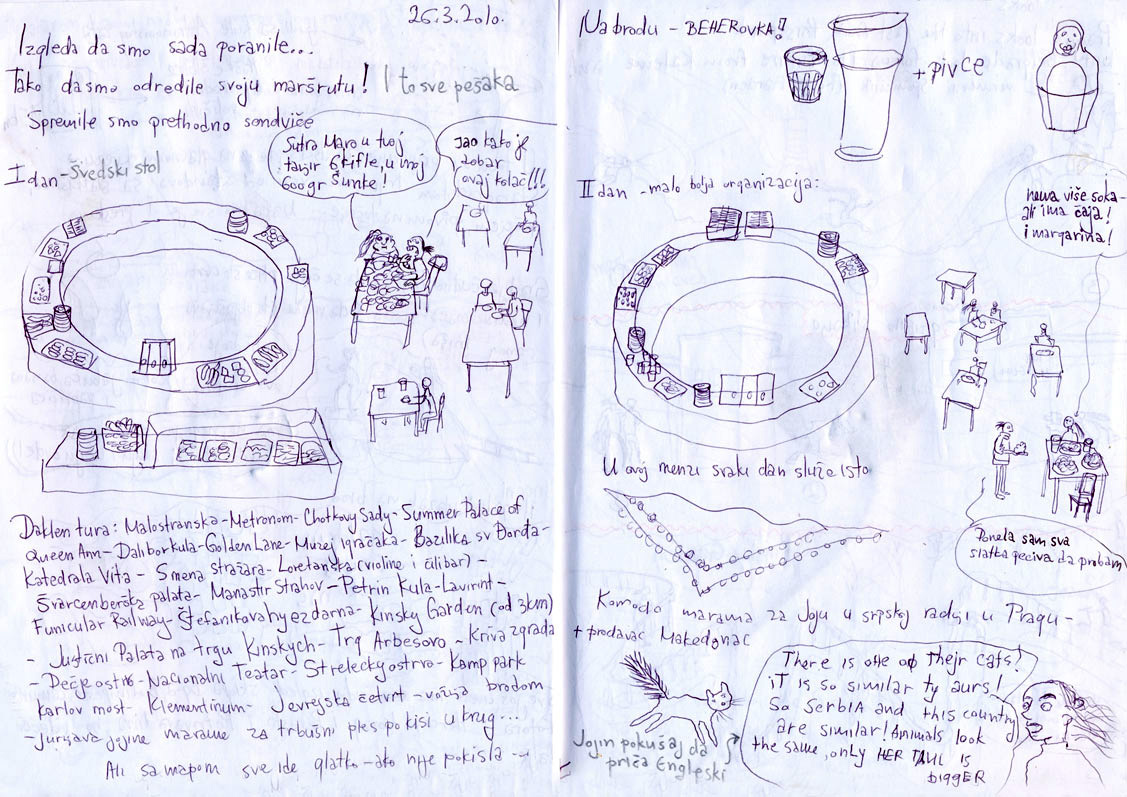 26.3.2010.
Izgleda da smo sada poranile...
Tako da smo odredile svoju maršrutu! I to sve pešaka
Spremile smo prethodno sendviče
Sutra Maro u tvoj
tanjir 6 kifle, u moj
600 gr šunke!
Jao kako je
dobar
ovaj kolač!!!
I dan - Švedski stol
Daklen tura: Malostranska - Metronom - Chotkovy Sady - Summer Palace of
Queen Ann - Daliborkula - Golden Lane - Muzej igračaka - Bazilika sv Đorđa -
Katedrala Vita - Smena stražara - Loretanska (violine i ćilibar) -
Švarcenberška palata - Manastir Strahov - Petrin Kula - Lavirint -
Funicular Railway - Štefanikova hvezdarna - Kinsky Garden (od 3km)
- Justični Palata na trgu Kinskych - Trg Arbesovo - Kriva zgrada
- Dečje ostrvo - Nacionalni Teatar - Strelecky ostrvo - Kamp park
Karlov most - Klementinum - Jevrejska četvrt - vožnja brodom
- Jurnjava jojine marame za trbušni ples po kisi u krug...
Ali sa mapom sve ide glatko - ako nije pokisla
Na brodu - BEHEROVKA!!
+ pivce
II dan - malo bolja organizacija:
nema više soka -
ali ima čaja!
i margarina!
U ovoj menzi svaki dan služe isto
Ponela sam sva
slatka peciva da probam
Komodo marama za Joju u srpskoj radnji u Pragu -
+ prodavac Makedonac
There is one of thejr cats!
iT is so similar ty aurs!
So SerbIA and this country
are similar! Animals look
the same, only HER TAIL is
bigger
Jojin pokušaj da
priča Engleski